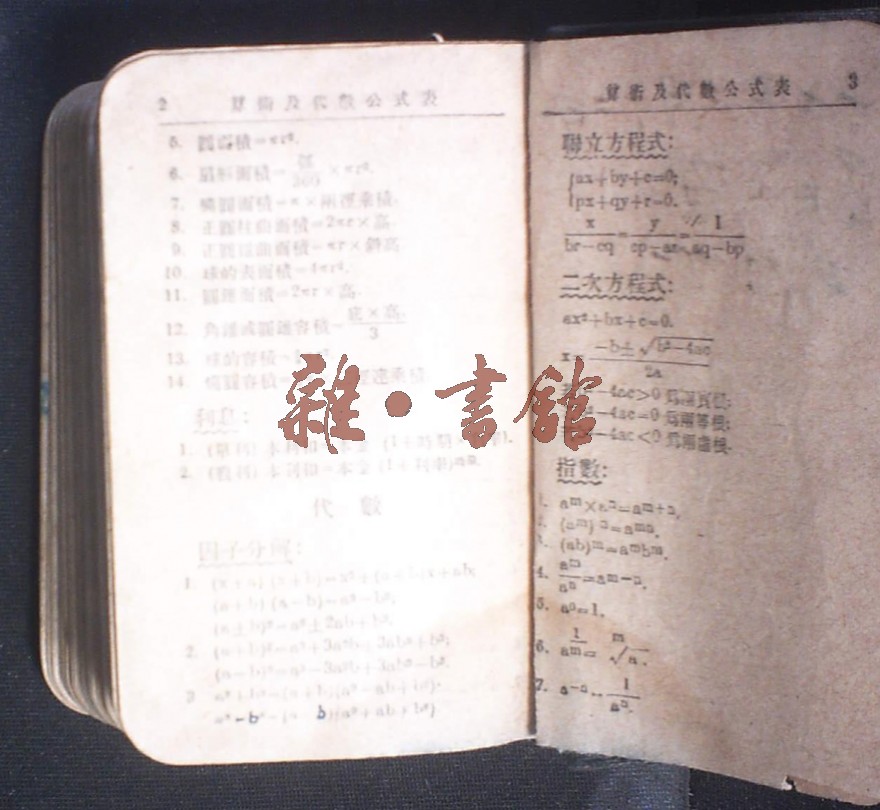 2 算術及代數公式表
5. 圓面積=πr².
6. 扇形面積=/360 ×πr².
7. 橢圓面積=π×兩徑乘積.
8. 正圓柱曲面積=2πr×高.
9. 正圓錐曲面積=πr×斜高
10. 球的表面積=4πr².
11. 面積=2πr×高.
12. 角錐或圓錐容積=底×高/3
13. 球的容積=
14. 容積= 乘積.
雜·書館
利息:
1. (單利) 本利和=本金 (1+時期×).
2. (複利) 本利和=本金 (1+利率)
代 數
因子分解:
1. (x+a)(x+b)=x²+(a+b)x+ab;
(a+b)(a-b)=a²-b²;
(a±b)²=a²±2ab+b².
2. (a+b)³=a³+3a²b+3ab²+b³;
(a-b)³=a³-3a²b+3ab²-b³.
3. a³+b³=(a+b)(a²-ab+b²).
a³-b³=(a-b)(a²+ab+b²)
算術及代數公式表 3
聯立方程式:
ax+by+c=0;
px+qy+r=0.
x/br-cq = y/cp-ar = 1/aq-bp
二次方程式:
ax²+bx+c=0.
x=-b±√b²-4ac/2a
-4ac>0 爲兩實根;
-4ac=0 爲兩等根;
-4ac<0 爲兩虛根.
指數:
1. aᵐ×aⁿ=aᵐ⁺ⁿ.
2. (aᵐ)ⁿ=aᵐⁿ.
3. (ab)ᵐ=aᵐbᵐ.
4. aᵐ/aⁿ=aᵐ⁻ⁿ.
5. a⁰=1.
6. a^1/m=ᵐ√a.
7. a⁻ⁿ=1/aⁿ.